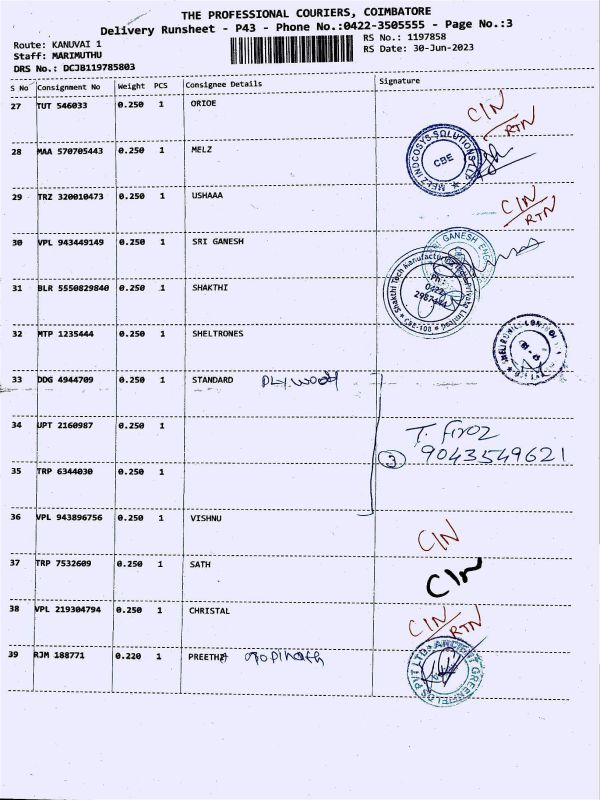 THE PROFESSIONAL COURIERS, COIMBATORE
Delivery Runsheet - P43 - Phone No.:0422-3505555 - Page No.:3
Route: KANUVAI 1
RS No.: 1197858
Staff: MARIMUTHU
RS Date: 30-Jun-2023
DRS No.: DCJB119785803
S No Consignment No Weight PCS Consignee Details Signature
27 TUT 546033 0.250 1 ORIOE
CIN
RTN
28 MAA 570705443 0.250 1 MELZ
CBE
29 TRZ 320010473 0.250 1 USHAAA
CIN
RTN
30 VPL 943449149 0.250 1 SRI GANESH
GANESH
31 BLR 5550829840 0.250 1 SHAKTHI
Shakthi Tech Manufacturing Private Limited
Ph:
0422
32 MTP 1235444 0.250 1 SHELTRONES
33 DDG 4944709 0.250 1 STANDARD Plywood
34 UPT 2160987 0.250 1
T. Firoz
3 9043549621
35 TRP 6344030 0.250 1
36 VPL 943896756 0.250 1 VISHNU
CIN
37 TRP 7532609 0.250 1 SATH
CIN
38 VPL 219304794 0.250 1 CHRISTAL
CIN
RTN
39 RJM 188771 0.220 1 PREETHA Gopinath
ANCIENT GREENFIELDS PVT LTD